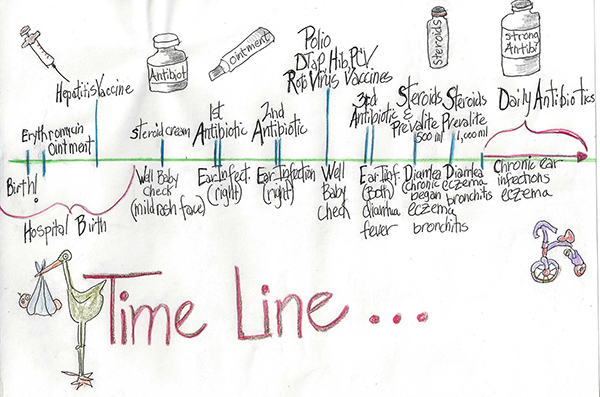 Hepatitis Vaccine
Antibiot
Ointment
Polio
DTaP, Hib, PCV,
Roto Virus Vaccines
Steroids
Strong
Antibi
Erythromycin
Ointment
Steroid cream
1st
Antibiotic
2nd
Antibiotic
3rd
Antibiotic
Steroids
&
Prevalite
500 ml
Steroids
Prevalite
1,000 ml
Daily Antibiotics
Birth!
Hospital Birth
Well Baby
check
(mild rash face)
Ear Infect.
(right)
Ear Infection
(right)
Well
Baby
Check
Ear Inf.
(Both)
diarrhea
fever
Diarrhea
chronic
began
eczema
bronchitis
Diarrhea
eczema
bronchitis
Chronic ear
infections
eczema
Time Line ...